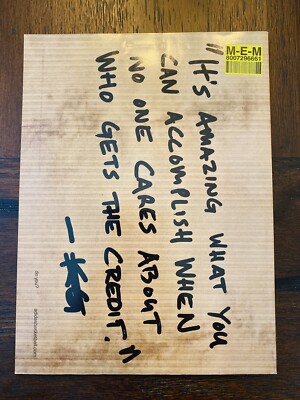 "IT'S AMAZING WHAT YOU
CAN ACCOMPLISH WHEN
NO ONE CARES ABOUT
WHO GETS THE CREDIT."
M-E-M
8007296661
do you?